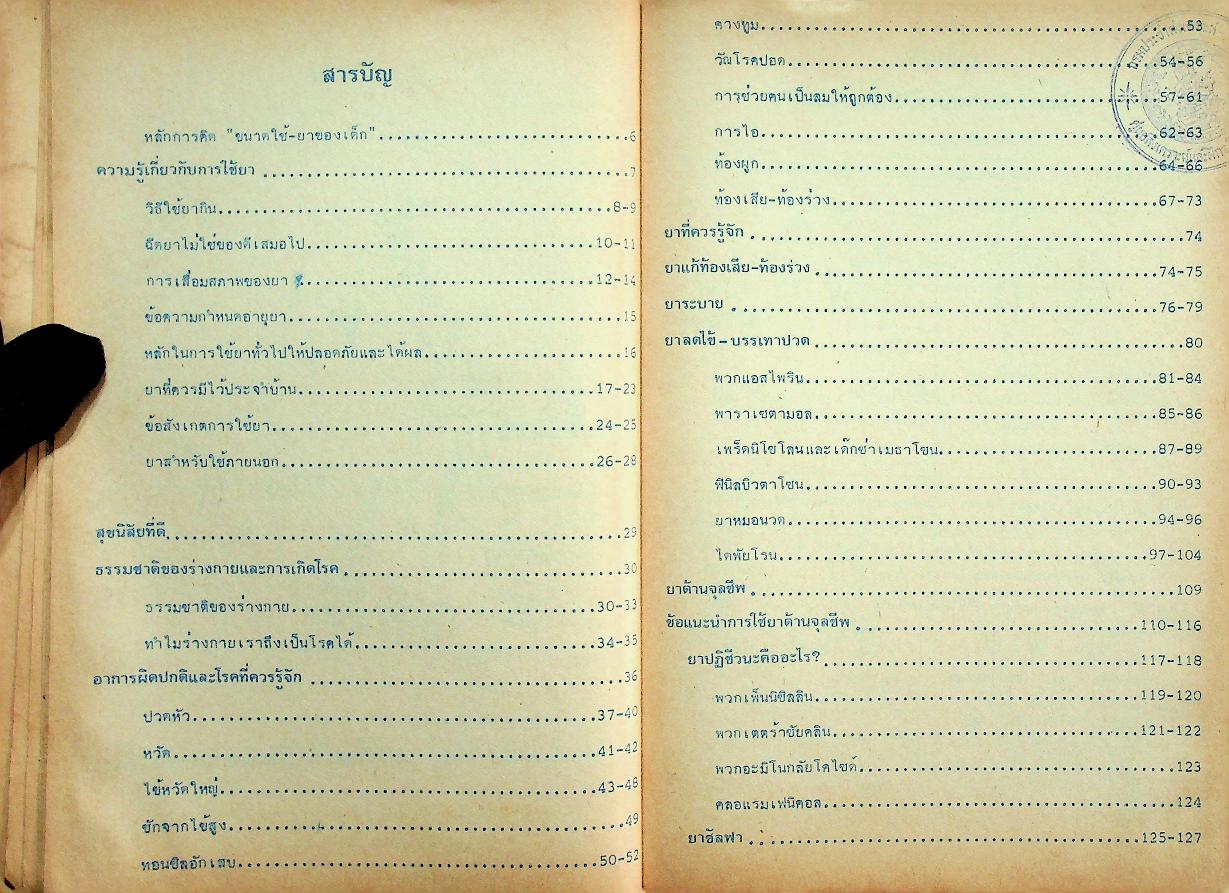 สารบัญ
หลักการคิด "ขนาดใช้-ยาของเด็ก"..............................6
ความรู้เกี่ยวกับการใช้ยา ..............................7
วิธีใช้ยากิน..............................8-9
ฉีดยาไม่ใช่ของดีเสมอไป..............................10-11
การเสื่อมสภาพของยา ..............................12-14
ข้อความกำหนดอายุยา..............................15
หลักในการใช้ยาทั่วไปให้ปลอดภัยและได้ผล..............................16
ยาที่ควรมีไว้ประจำบ้าน..............................17-23
ข้อสังเกตการใช้ยา..............................24-25
ยาสำหรับใช้ภายนอก..............................26-28
สุขนิสัยที่ดี..............................29
ธรรมชาติของร่างกายและการเกิดโรค..............................30
ธรรมชาติของร่างกาย..............................30-33
ทำไมร่างกายเราถึงเป็นโรคได้..............................34-35
อาการผิดปกติและโรคที่ควรรู้จัก ..............................36
ปวดหัว..............................37-40
หวัด..............................41-42
ไข้หวัดใหญ่..............................43-48
ชักจากไข้สูง..............................49
ทอนซิลอักเสบ..............................50-52
คางทูม..............................53
วัณโรคปอด..............................54-56
การช่วยคนเป็นลมให้ถูกต้อง..............................57-61
การไอ..............................62-63
ท้องผูก..............................64-66
ท้องเสีย-ท้องร่วง..............................67-73
ยาที่ควรรู้จัก ..............................74
ยาแก้ท้องเสีย-ท้องร่วง ..............................74-75
ยาระบาย ..............................76-79
ยาลดไข้-บรรเทาปวด ..............................80
พวกแอสไพริน..............................81-84
พาราเซตามอล..............................85-86
เพร็ดนิโซโลนและเด๊กซ่าเมธาโซน..............................87-89
ฟีนิลบิวตาโซน..............................90-93
ยาหมอนวด..............................94-96
ไดพัยโรน..............................97-104
ยาต้านจุลชีพ ..............................109
ข้อแนะนำการใช้ยาต้านจุลชีพ ..............................110-116
ยาปฏิชีวนะคืออะไร?..............................117-118
พวกเพ็นนิซิลลิน..............................119-120
พวกเตตร้าซัยคลิน..............................121-122
พวกอะมิโนกลัยโคไซด์..............................123
คลอแรมเฟนิคอล..............................124
ยาซัลฟา ..............................125-127